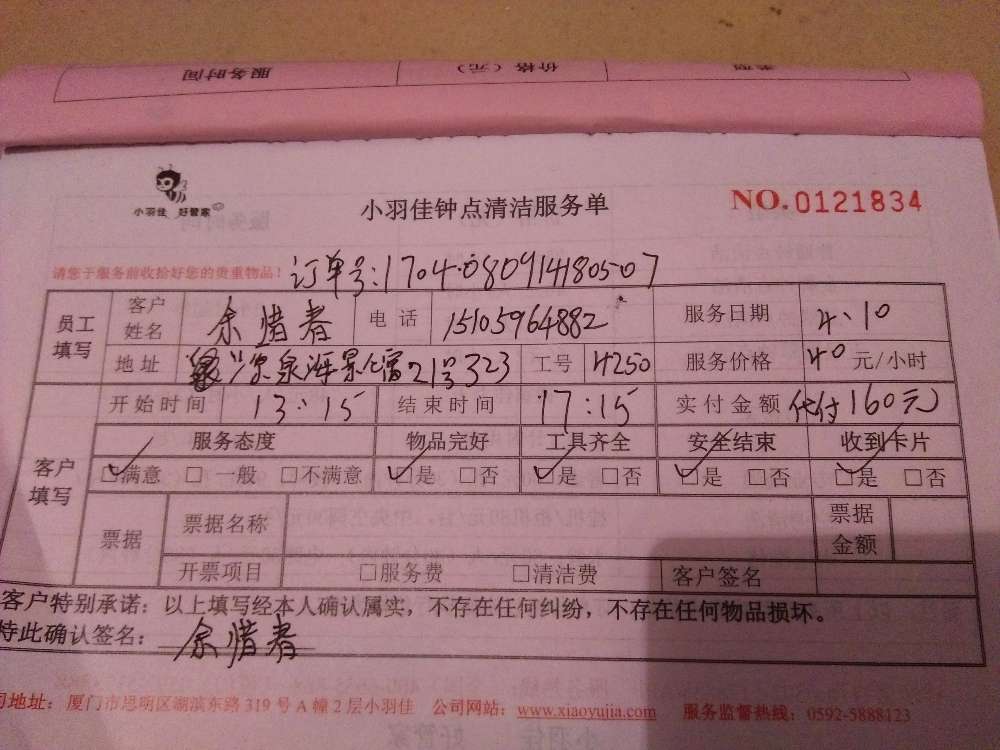 服务时间 价格（元） 类型
小羽佳 好管家
小羽佳钟点清洁服务单
NO.0121834
请您于服务前收拾好您的贵重物品！
订单号:1704080914180507
员工填写 客户姓名 余惜春 电话 15105964882 服务日期 4.10
地址 泉海景公寓21号323 工号 4250 服务价格 40 元/小时
开始时间 13:15 结束时间 17:15 实付金额 代付160元
客户填写 服务态度 物品完好 工具齐全 安全结束 收到卡片
☑满意 □一般 □不满意 ☑是 □否 ☑是 □否 ☑是 □否 ☑是 □否
票据 票据名称 票据金额
开票项目 □服务费 □清洁费 客户签名
客户特别承诺：以上填写经本人确认属实，不存在任何纠纷，不存在任何物品损坏。
特此确认签名： 余惜春
司地址：厦门市思明区湖滨东路319号A幢2层小羽佳 公司网站：www.xiaoyujia.com 服务监督热线：0592-5888123